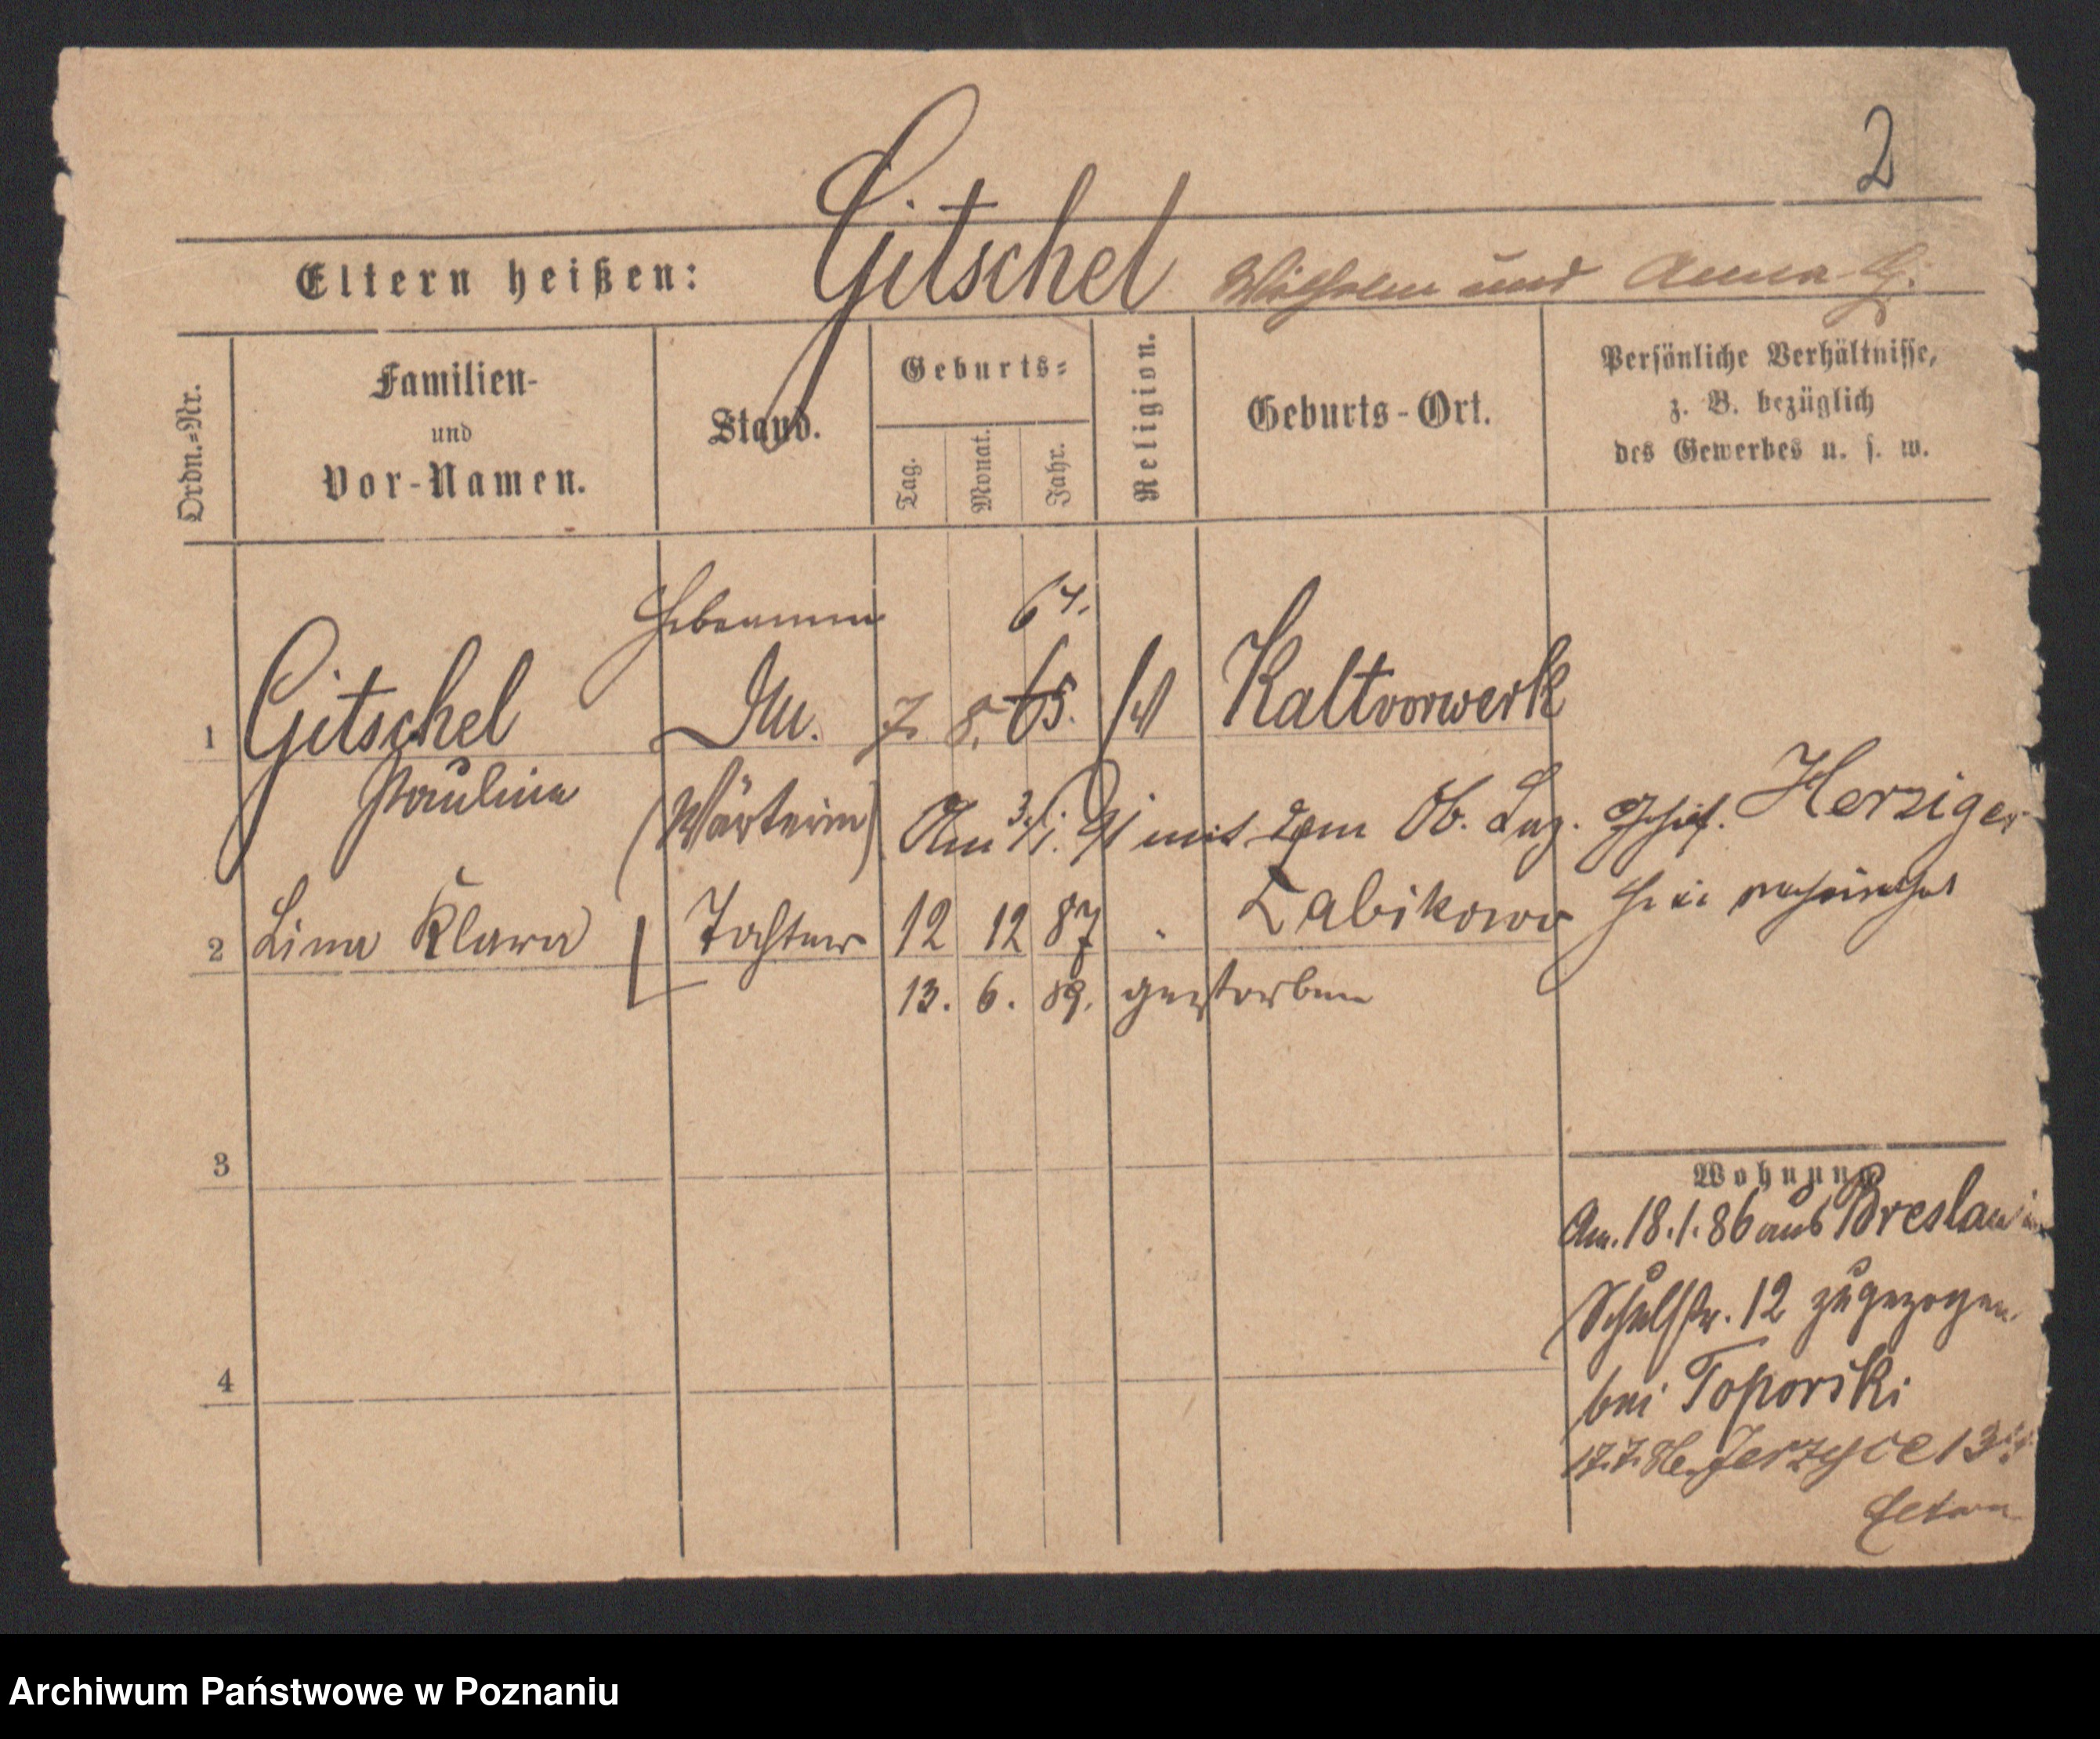 2
Eltern heißen: Gitschel Wilhelm und Anna G.
Ordn.=Nr.
Familien-
und
Vor-Namen.
Stand.
Geburts=
Tag.
Monat.
Jahr.
Religion.
Geburts-Ort.
Persönliche Verhältnisse,
z. B. bezüglich
des Gewerbes u. s. w.
Hebamme 64.
1 Gitschel 7. 8. 65. Kaltvorwerk
Pauline (Wärterin) Am 91 mit dem Ob. Laz. Herziger
2 Lina Klara Tochter 12 12 87 " Zabikowo
13. 6. 89. gestorben
3
4
Wohnung
Am. 18.1.86 aus Breslau
Schulstr. 12 zugezogen.
bei Toporski
17.7.86. Jerzyce 13
Eltern
Archiwum Państwowe w Poznaniu